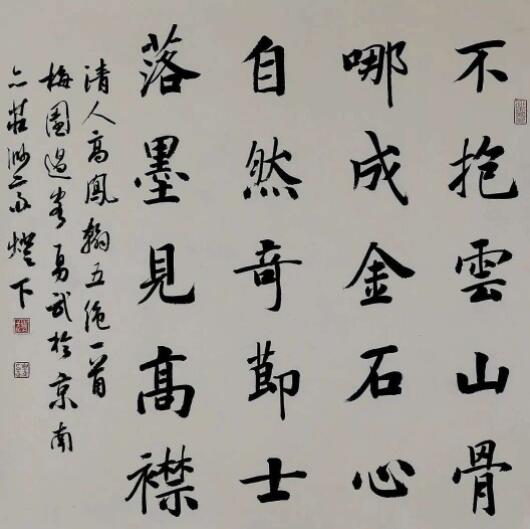 不抱雲山骨
哪成金石心
自然奇節士
落墨見高襟
清人高鳳翰五絕一首
梅園過客勇武於京南
亦莊 燈下